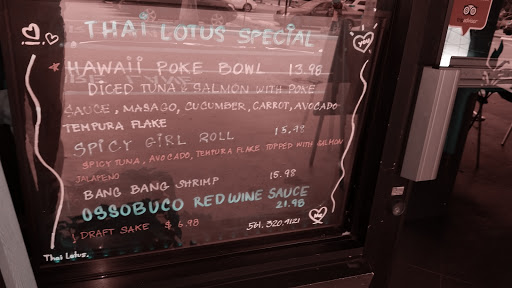 THAI LOTUS SPECIAL
HAWAII POKE BOWL 13.98
DICED TUNA & SALMON WITH POKE
SAUCE, MASAGO, CUCUMBER, CARROT, AVOCADO
TEMPURA FLAKE
SPICY GIRL ROLL 15.98
SPICY TUNA, AVOCADO, TEMPURA FLAKE TOPPED WITH SALMON
JALAPENO
BANG BANG SHRIMP 15.98
OSSOBUCO RED WINE SAUCE
21.98
DRAFT SAKE $6.98 561.320.9121
Thai Lotus.